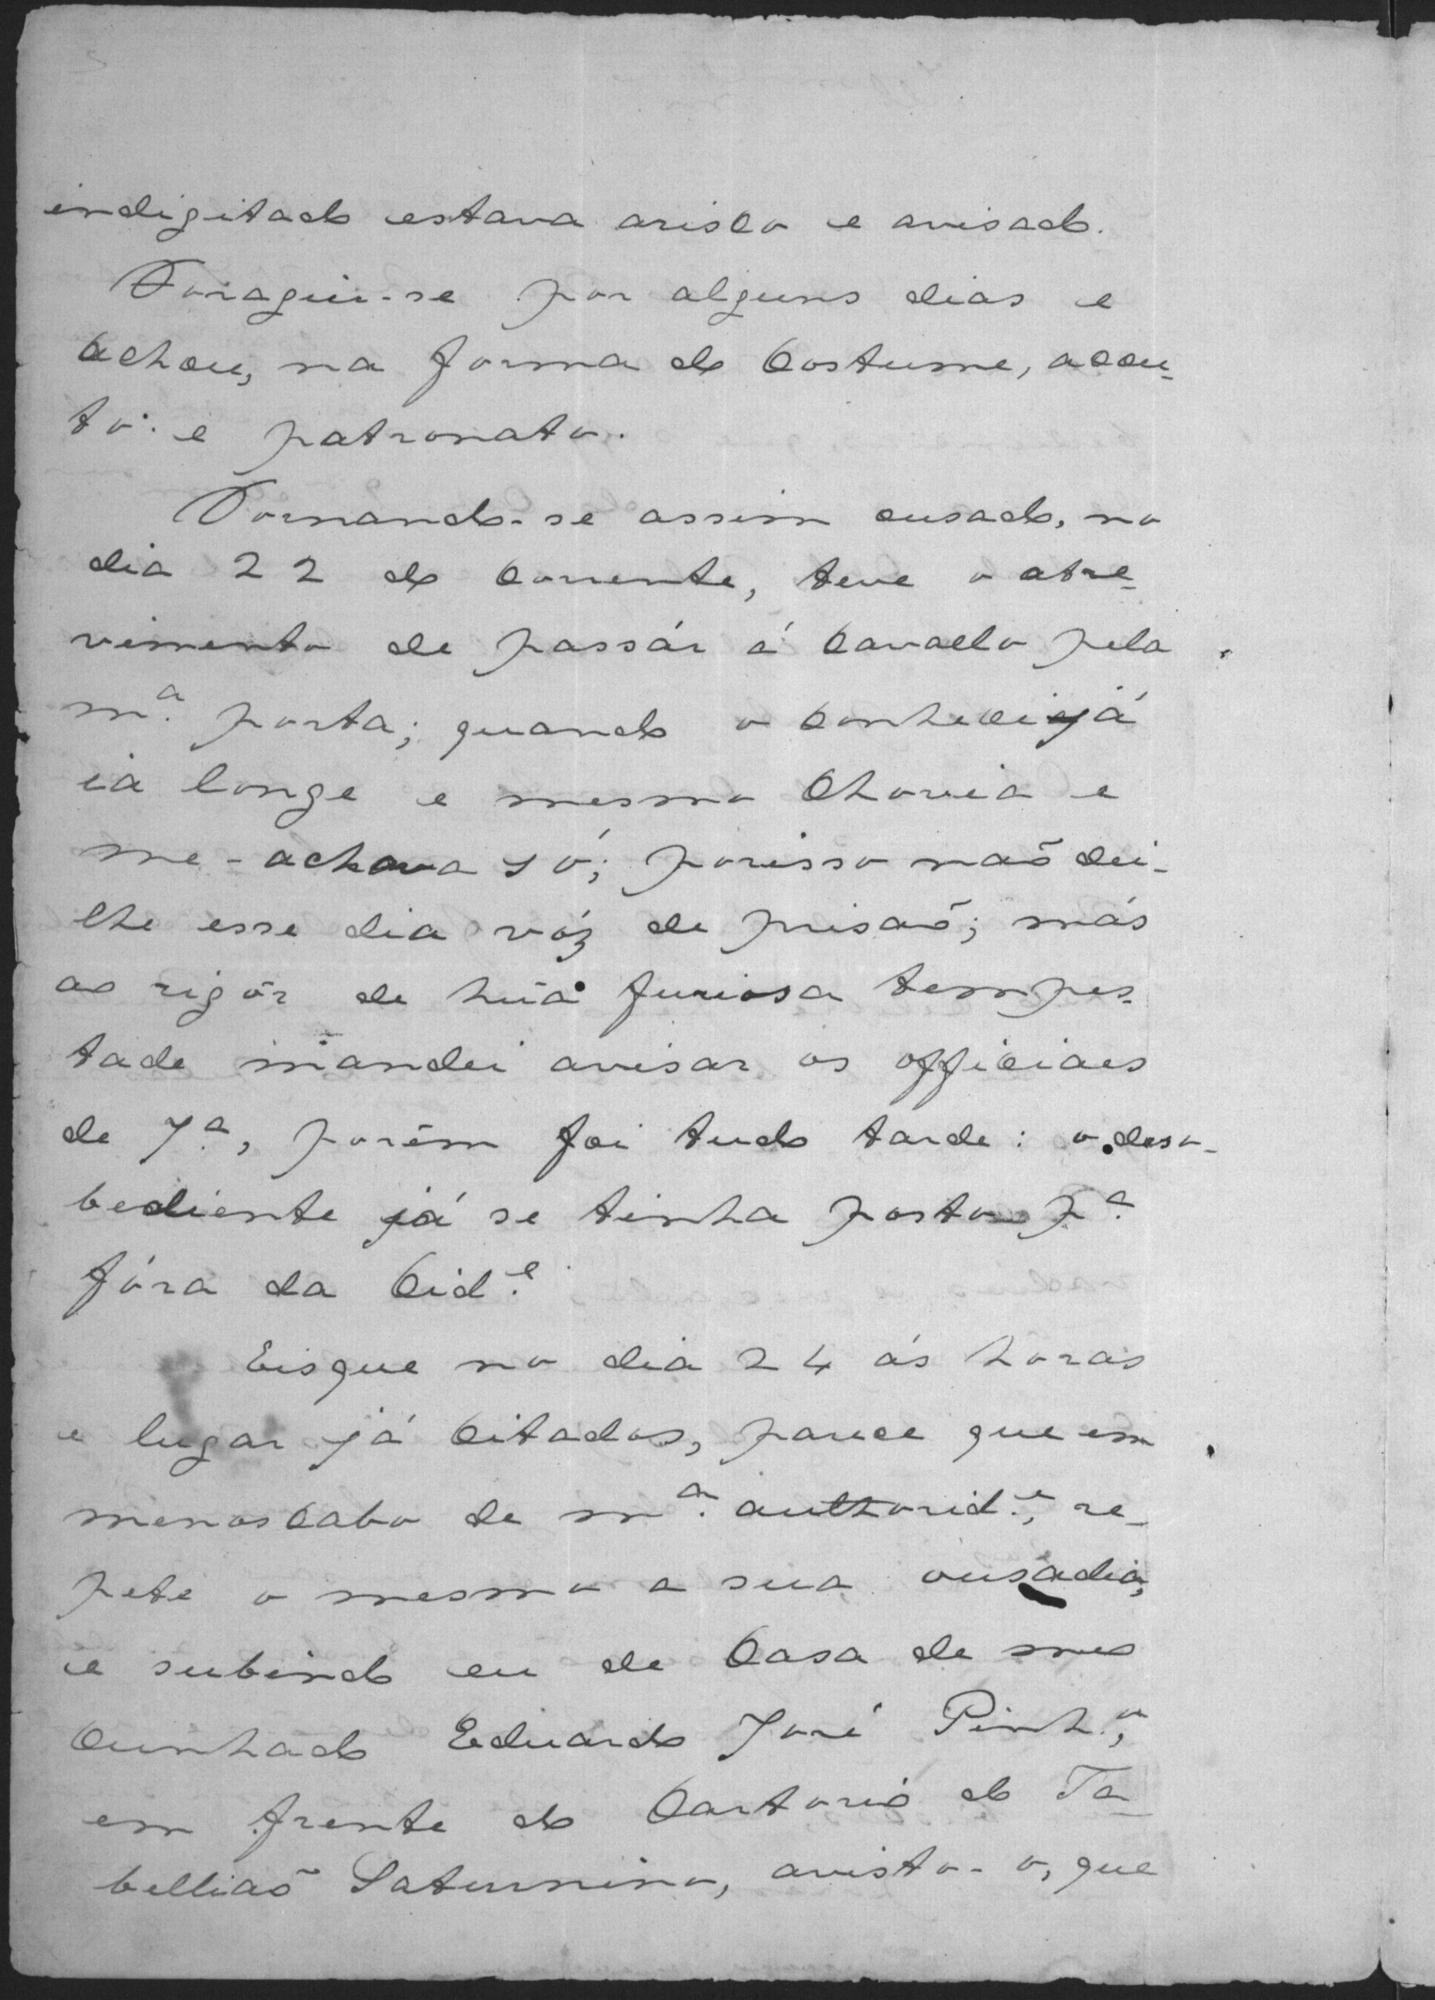 indigitado estava arisco e avisado.
Foragiu-se por alguns dias e
achou, na forma do costume, acou-
to e patronato.
Tornando-se assim ousado, no
dia 22 do corrente, teve o atre-
vimento de passár á cavallo pela
m.ª porta; quando o conheci já
ia longe e mesmo chovia e
me-achava só; porisso naõ dei-
lhe esse dia vóz de prisaõ; más
ao rigôr de hũa furiosa tempes-
tade mandei avisar os officiaes
de J.ª, porêm foi tudo tarde: o deso-
bediente já se tinha posto p.ª
fóra da Cid.e
Eisque no dia 24 ás horas
e lugar já citados, parece que em
menoscabo de m.ª authorid.e, re-
pete o mesmo a sua ousadia,
e subindo eu de casa de meo
cunhado Eduardo José Pinh.o,
em frente do Cartorio do Ta-
belliaõ Saturnino, avisto-o, que